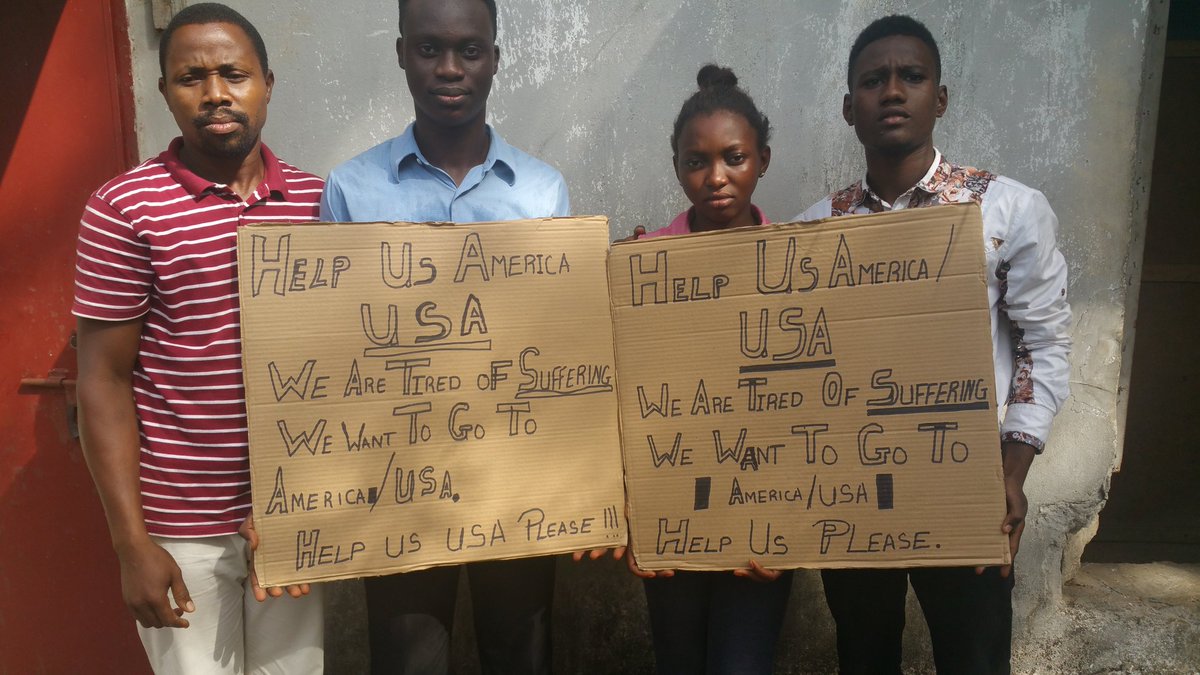 HELP US AMERICA
USA
WE ARE TIRED OF SUFFERING
WE WANT TO GO TO
AMERICA/USA.
HELP US USA PLEASE!!!
HELP US AMERICA/
USA
WE ARE TIRED OF SUFFERING
WE WANT TO GO TO
AMERICA/USA
HELP US PLEASE.